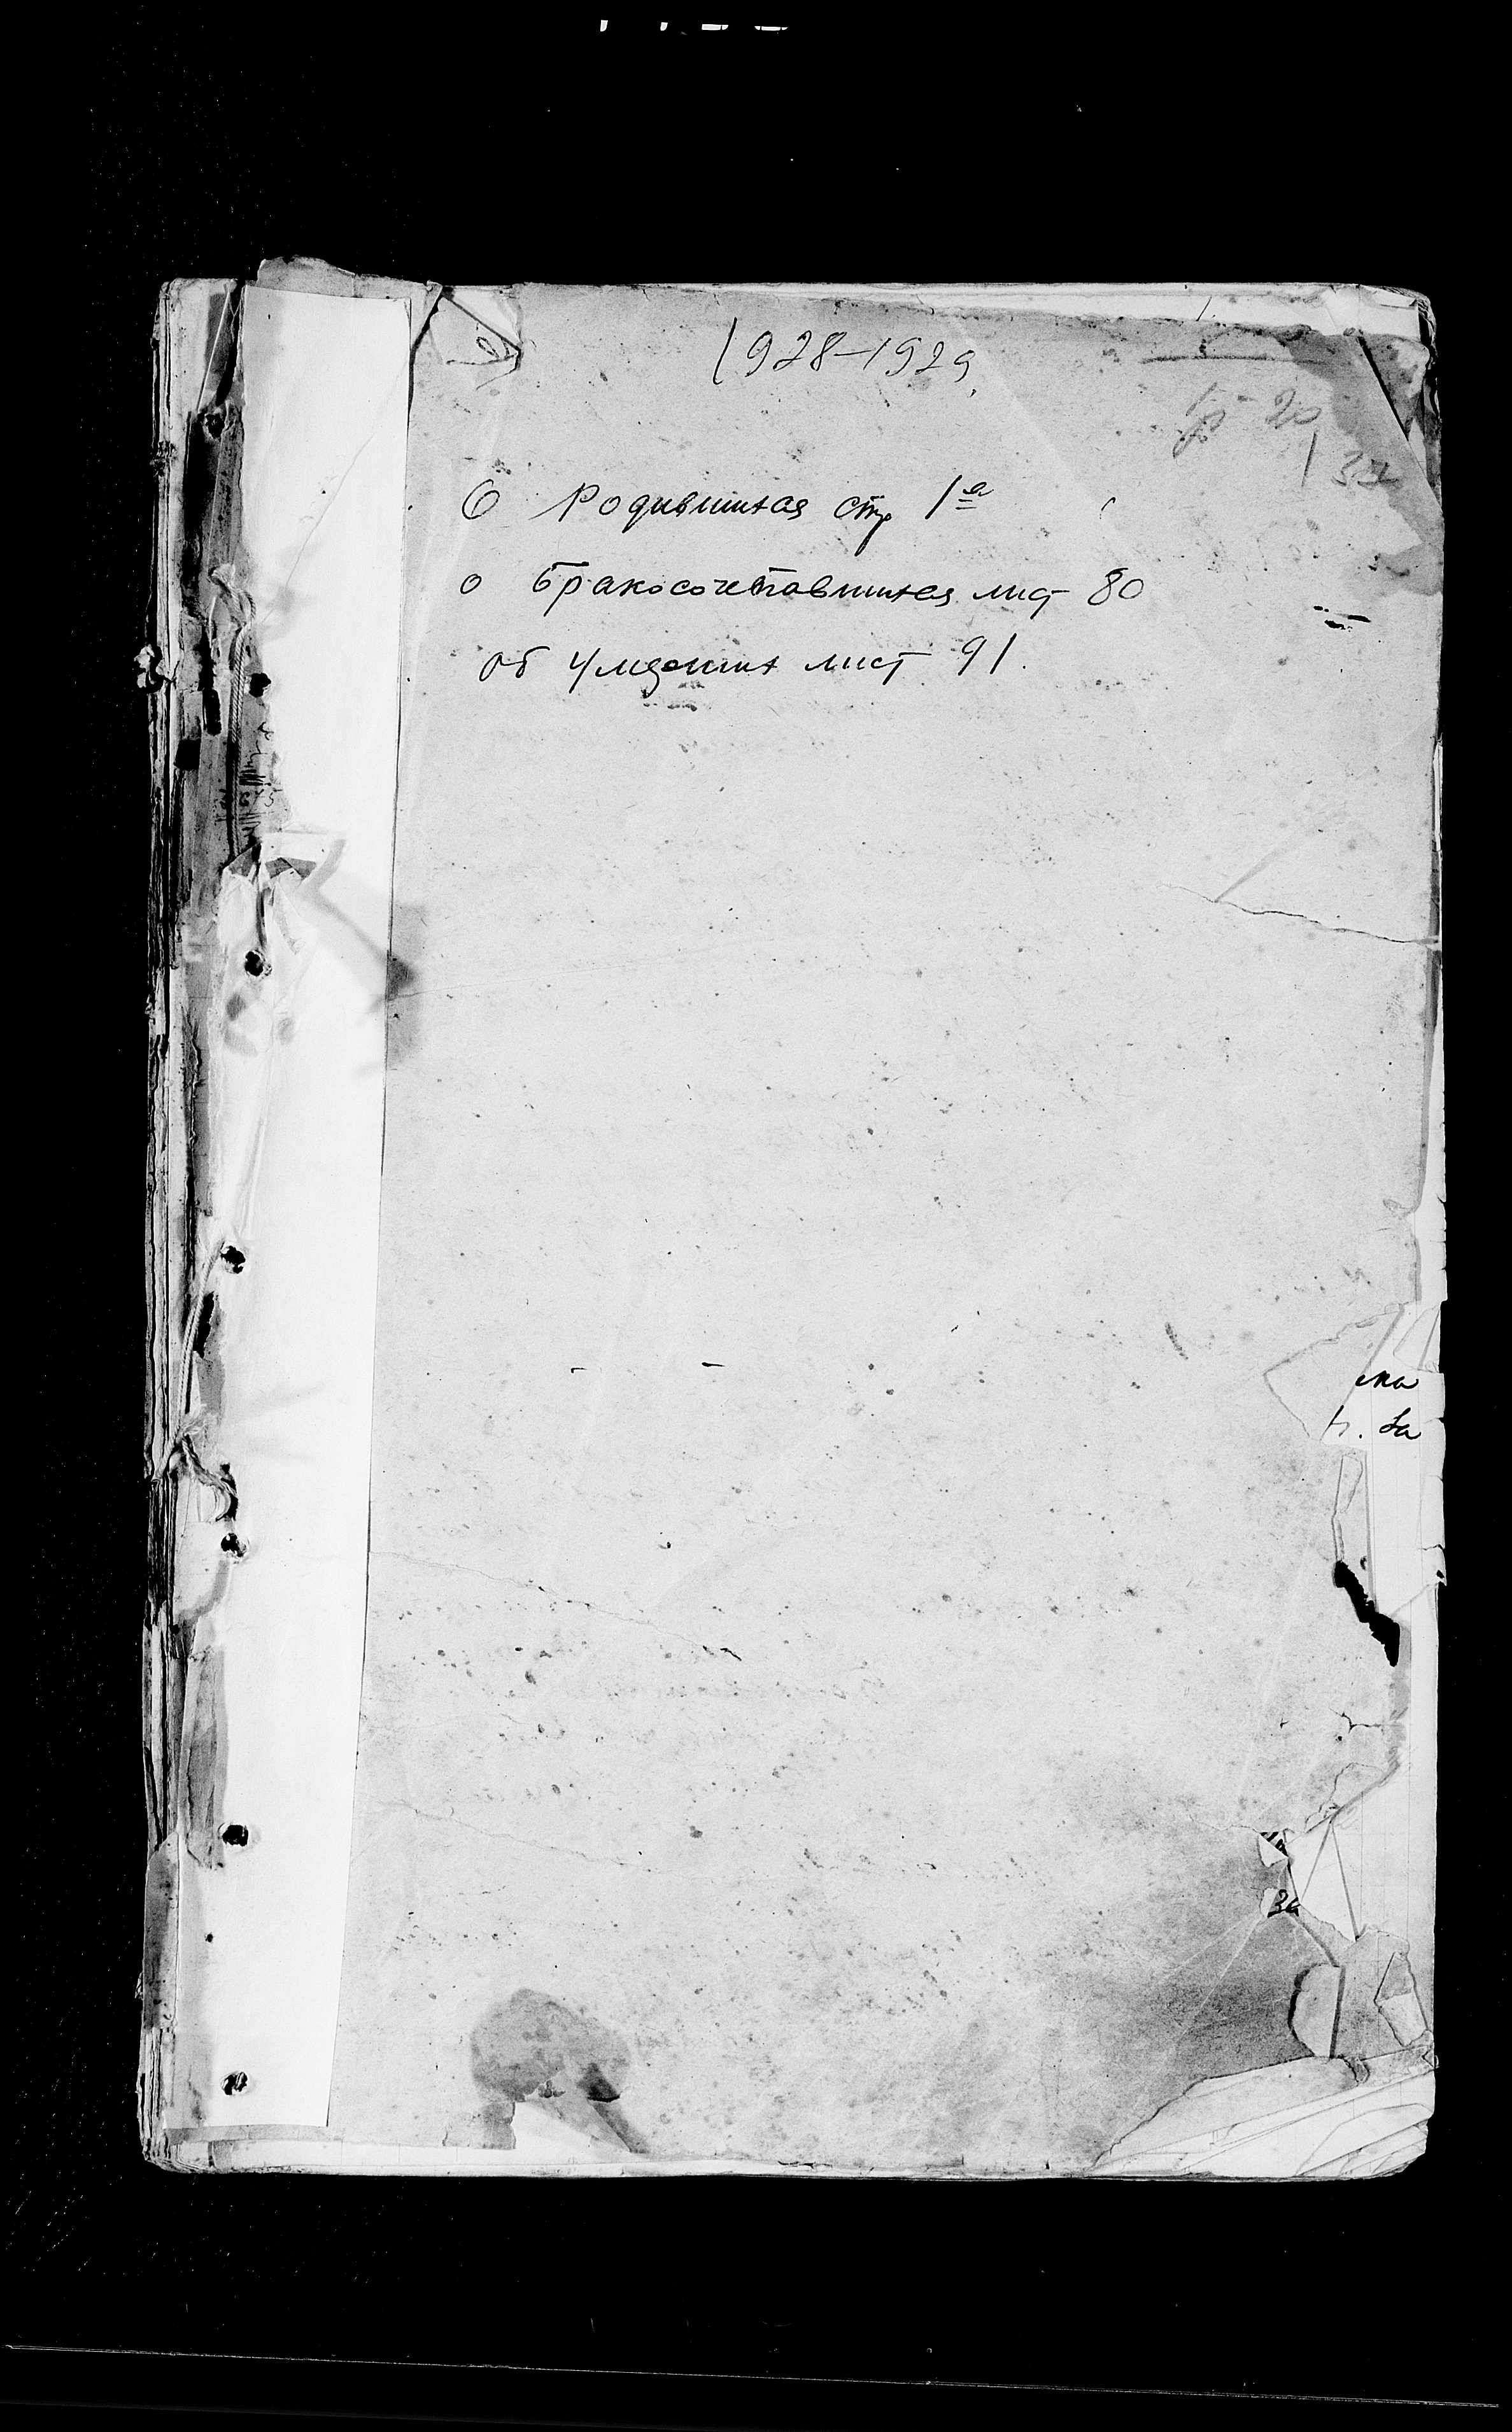 1928-1929
О Родившихся стр 1я
о бракосочетавшихся лист 80
об умерших лист 91.
За